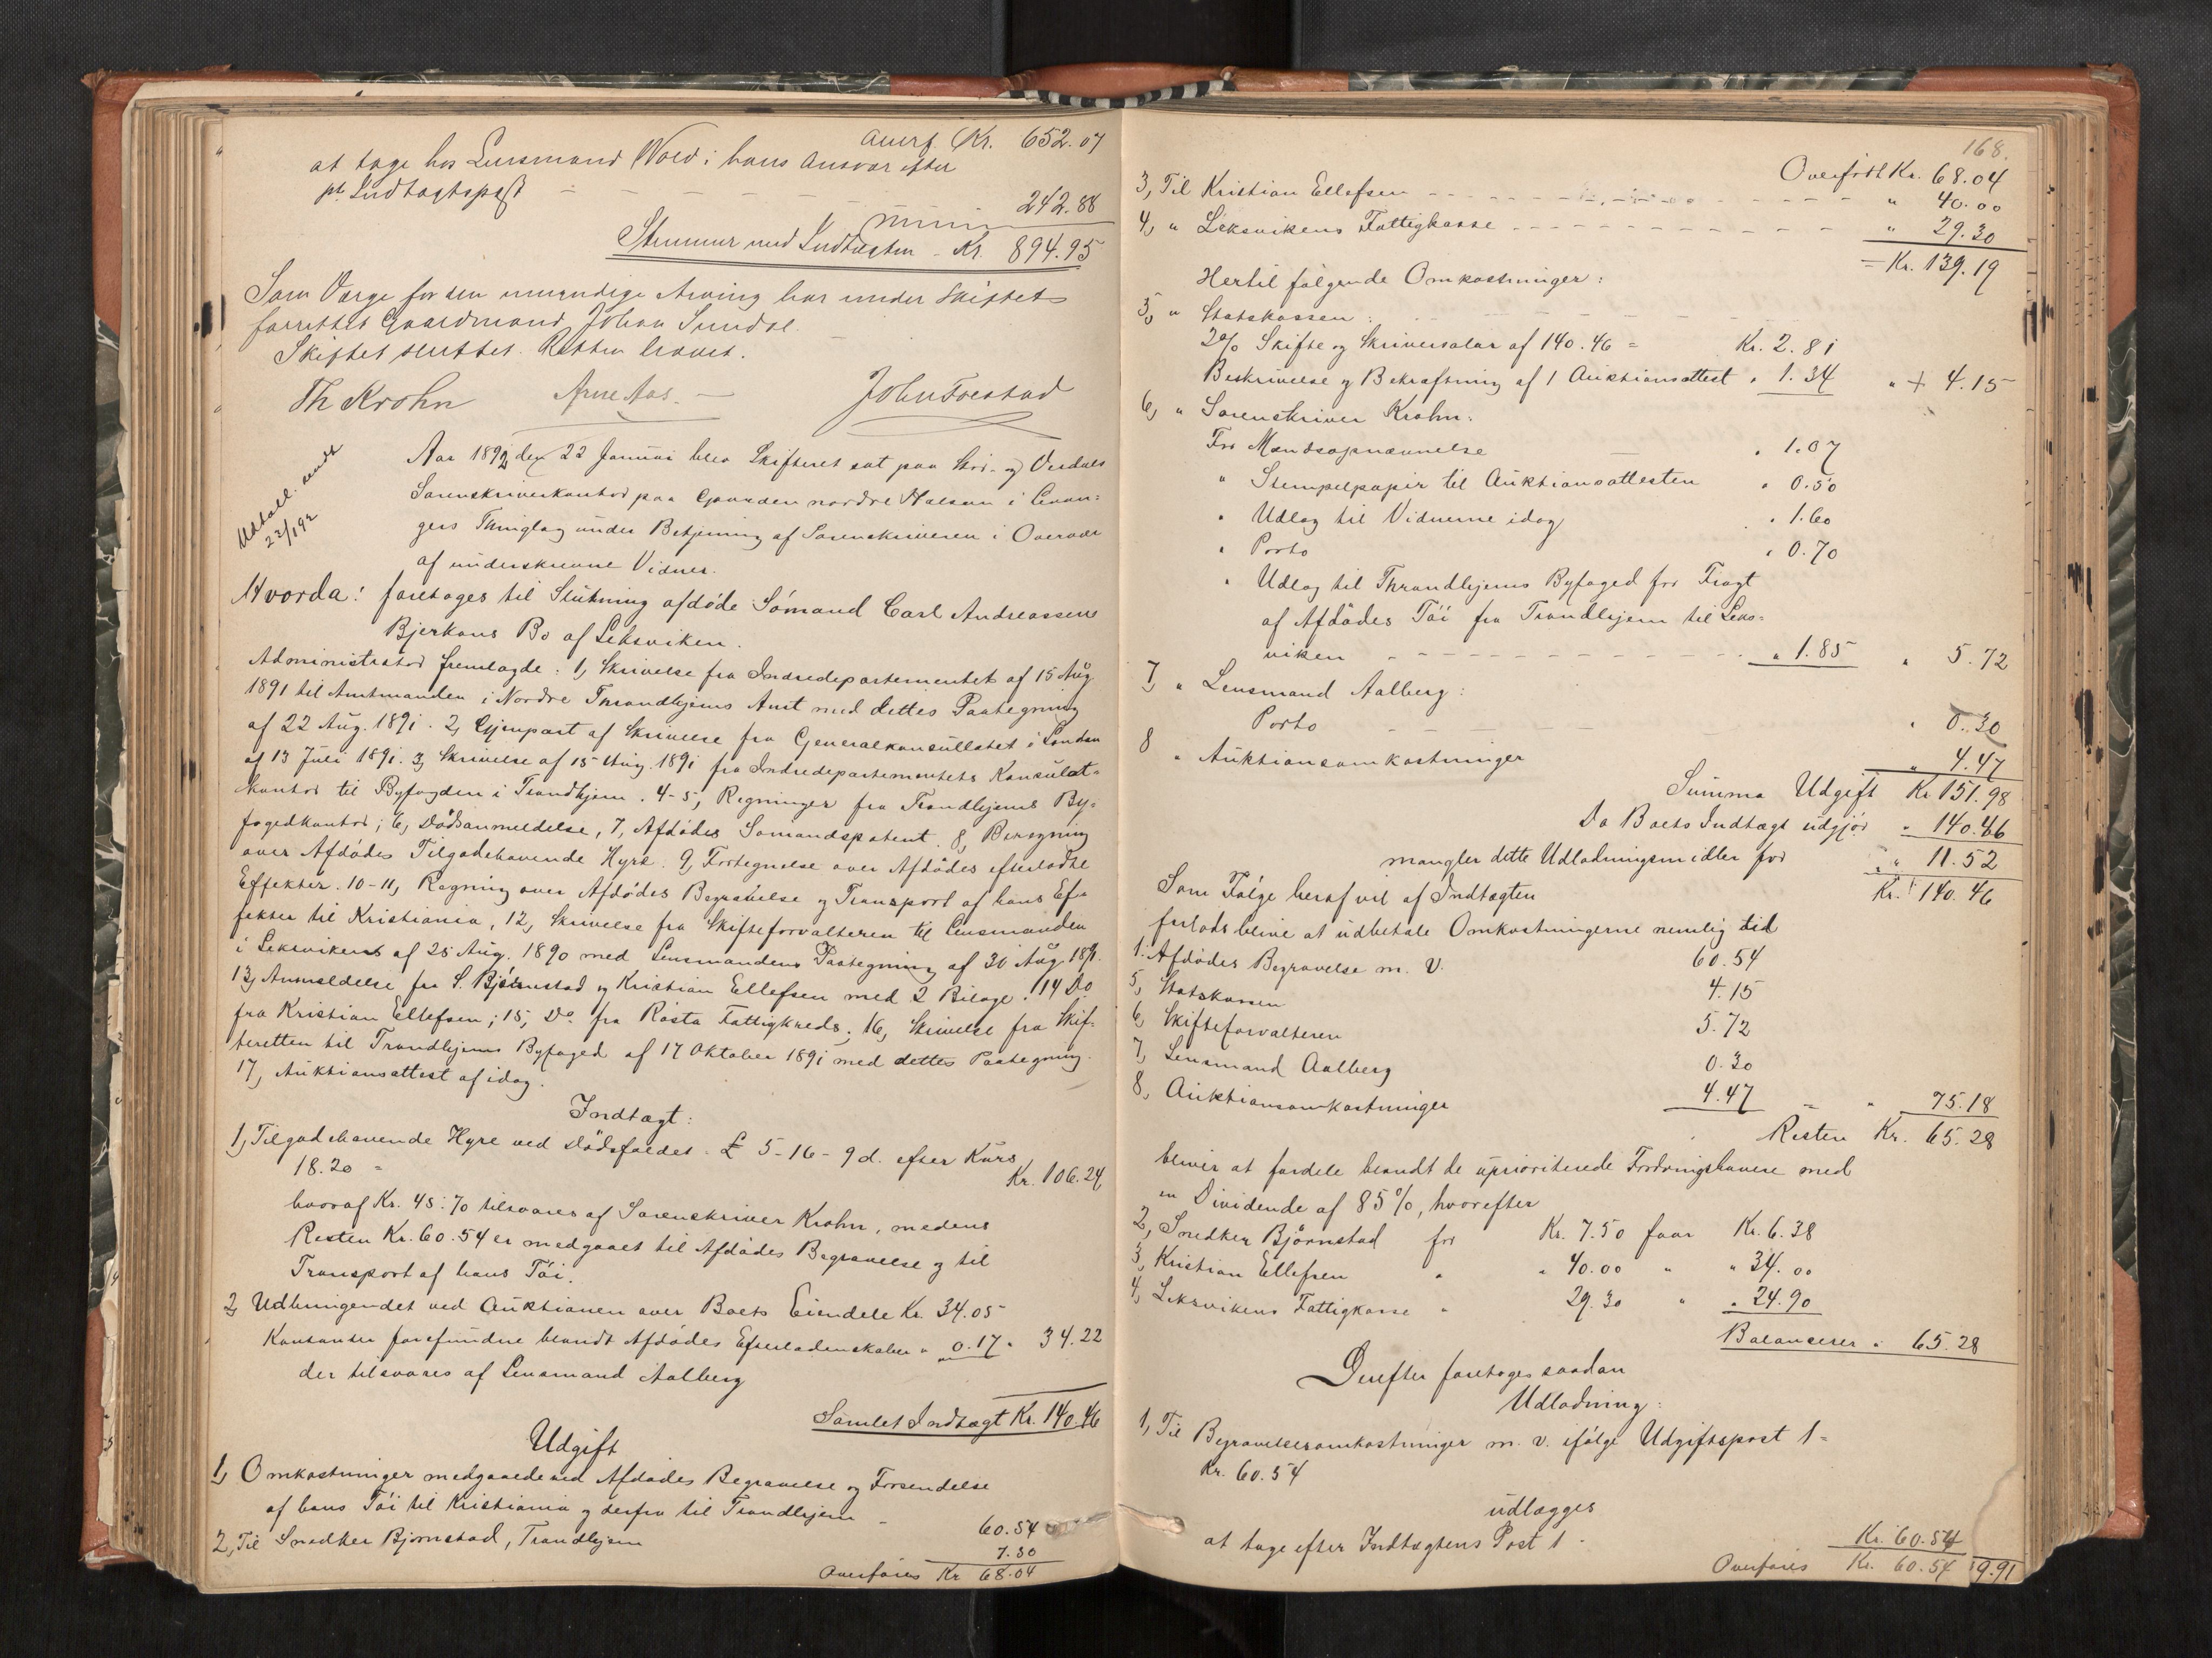 Overf. Kr. 652.07
at tage hos Lensmand Wold i hans Ansvar efter
pt. Indtægtspost - - - - 242.88
Stemmer med Indtægten - Kr. 894.95
Som Værge for den umyndige Arving har under Skiftet
forrettet Gaardmand Johan Sundal.
Skiftet sluttet. Retten hævet.
Th Krohn Arne Aas. John Forstad
Udskr. sendt
23/1 92
Aar 1892 den 22 Januar blev Skifteret sat paa Stør- og Værdals
Sorenskriverkontor paa Gaarden nordre Halsan i Levan-
gers Thinglag under Betjening af Sorenskriveren i Overvær
af underskrevne Vidner.
Hvorda: foretoges til Slutning afdøde Sømand Carl Andreassens
Bjerkans Bo af Leksviken.
Administrator fremlagde: 1, Skrivelse fra Indredepartementet af 15 Aug.
1891 til Amtmanden i Nordre Throndhjems Amt med dettes Paategning
af 22 Aug. 1891. 2, Gjenpart af Skrivelse fra Generalkonsullatet i London
af 13 Juli 1891. 3, Skrivelse af 15 Aug. 1891 fra Indredepartementets Konsulat-
kontor til Byfogden i Trondhjem. 4-5, Regninger fra Trondhjems By-
fogedkontor; 6, Dødsanmeldelse, 7, Afdødes Sømandspatent. 8, Beregning
over Afdødes Tilgodehavende Hyre. 9, Fortegnelse over Afdødes efterladte
Effekter. 10-11, Regning over Afdødes Begravelse og Transport af hans Ef-
fekter til Kristiania, 12, Skrivelse fra Skifteforvalteren til Lensmanden
i Leksviken af 25 Aug. 1890 med Lensmandens Paategning af 30 Aug. 1891.
13, Anmeldelse fra S. Bjørnstad og Kristian Ellefsen med 2 Bilage. 14 Do
fra Kristian Ellefsen; 15, Do fra Rosta Fattigkreds; 16, Skrivelse fra Skif-
teretten til Trondhjems Byfoged af 17 Oktober 1891 med dettes Paategning.
17, Auktionsattest af idag.
Indtægt:
1, Tilgodehavende Hyre ved Dødsfaldet £ 5-16-9 d. efter Kurs
18.20 = Kr. 106.24
hvoraf Kr. 45.70 tilsvares af Sorenskriver Krohn, medens
Resten Kr. 60.54 er medgaaet til Afdødes Begravelse og til
Transport af hans Tøi.
2, Udbringendet ved Auktionen over Boets Eiendele Kr. 34.05
Kontanter forefundne blandt Afdødes Efterladenskaber " 0.17 " 34.22
der tilsvares af Lensmand Aalberg
Samlet Indtægt Kr. 140.46
Udgift
1, Omkostninger medgaaede ved Afdødes Begravelse og Forsendelse
af hans Tøi til Kristiania og derfra til Trondhjem - 60.54
2, Til Snedker Bjørnstad, Trondhjem 7.50
Overføres Kr 68.04
168.
Overført Kr. 68.04
3, Til Kristian Ellefsen - - - " 40.00
4, " Leksvikens Fattigkasse - - - " 29.30
= Kr. 139.19
Hertil følgende Omkostninger:
5, " Statskassen:
2% Skifte og Skriversalær af 140.46 = Kr. 2.81
Beskrivelse og Bekræftning af 1 Auktionsattest " 1.34 " + 4.15
6, " Sorenskriver Krohn:
For Mandsopnævnelse " 1.07
" Stempelpapir til Auktionsattesten " 0.50
" Udlæg til Vidnerne idag " 1.60
" Porto " 0.70
" Udlæg til Throndhjems Byfoged for Fragt
af Afdødes Tøi fra Trondhjem til Leks-
viken - - - " 1.85 " 5.72
7, " Lensmand Aalberg:
Porto - - - " 0.30
8 " Auktionsomkostninger " 4.47
Summa Udgift Kr 151.98
Da Boets Indtægt udgjør " 140.46
mangler dette Udlodningsmidler for " 11.52
Kr. 140.46
Som Følge heraf vil af Indtægten
forlods blive at udbetale Omkostningerne nemlig til
1. Afdødes Begravelse m. V. 60.54
5, Statskassen 4.15
6, Skifteforvalteren 5.72
7, Lensmand Aalberg 0.30
8, Auktionsomkostninger 4.47 = " 75.18
Resten Kr. 65.28
bliver at fordele blandt de uprioriterede Fordringshavere med
en Dividende af 85%, hvorefter
2, Snedker Bjørnstad for Kr. 7.50 faar Kr. 6.38
3, Kristian Ellefsen " " 40.00 " " 34.00
4, Leksvikens Fattigkasse " 29.30 " " 24.90
Balancerer " 65.28
Derefter foretoges saadan
Udlodning:
1, Til Begravelsesomkostninger m. v. ifølge Udgiftspost 1 -
Kr. 60.54
udlægges
at tage efter Indtægtens Post 1 - Kr. 60.54
Overføres Kr. 60.54
9.91